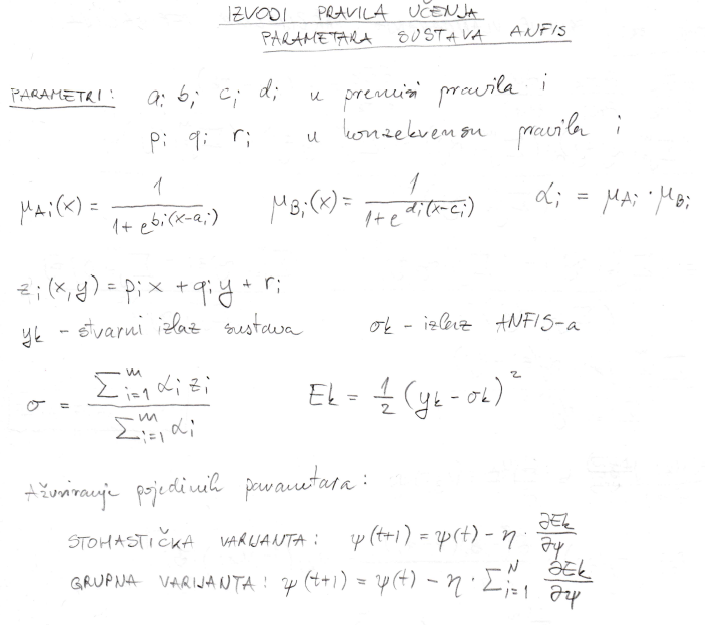 IZVODI PRAVILA UČENJA
PARAMETARA SUSTAVA ANFIS
PARAMETRI: ai bi ci di u premisi pravila i
pi qi ri u konzekvensu pravila i
μAi(x) = 1 / (1 + e^(bi(x-ai))) μBi(x) = 1 / (1 + e^(di(x-ci))) αi = μAi · μBi
zi(x,y) = pi x + qi y + ri
yk - stvarni izlaz sustava ok - izlaz ANFIS-a
o = ∑_{i=1}^{m} αi zi / ∑_{i=1}^{m} αi Ek = 1/2 (yk - ok)^2
Ažuriranje pojedinih parametara:
STOHASTIČKA VARIJANTA: ψ(t+1) = ψ(t) - η · ∂Ek/∂ψ
GRUPNA VARIJANTA: ψ(t+1) = ψ(t) - η · ∑_{i=1}^{N} ∂Ek/∂ψ